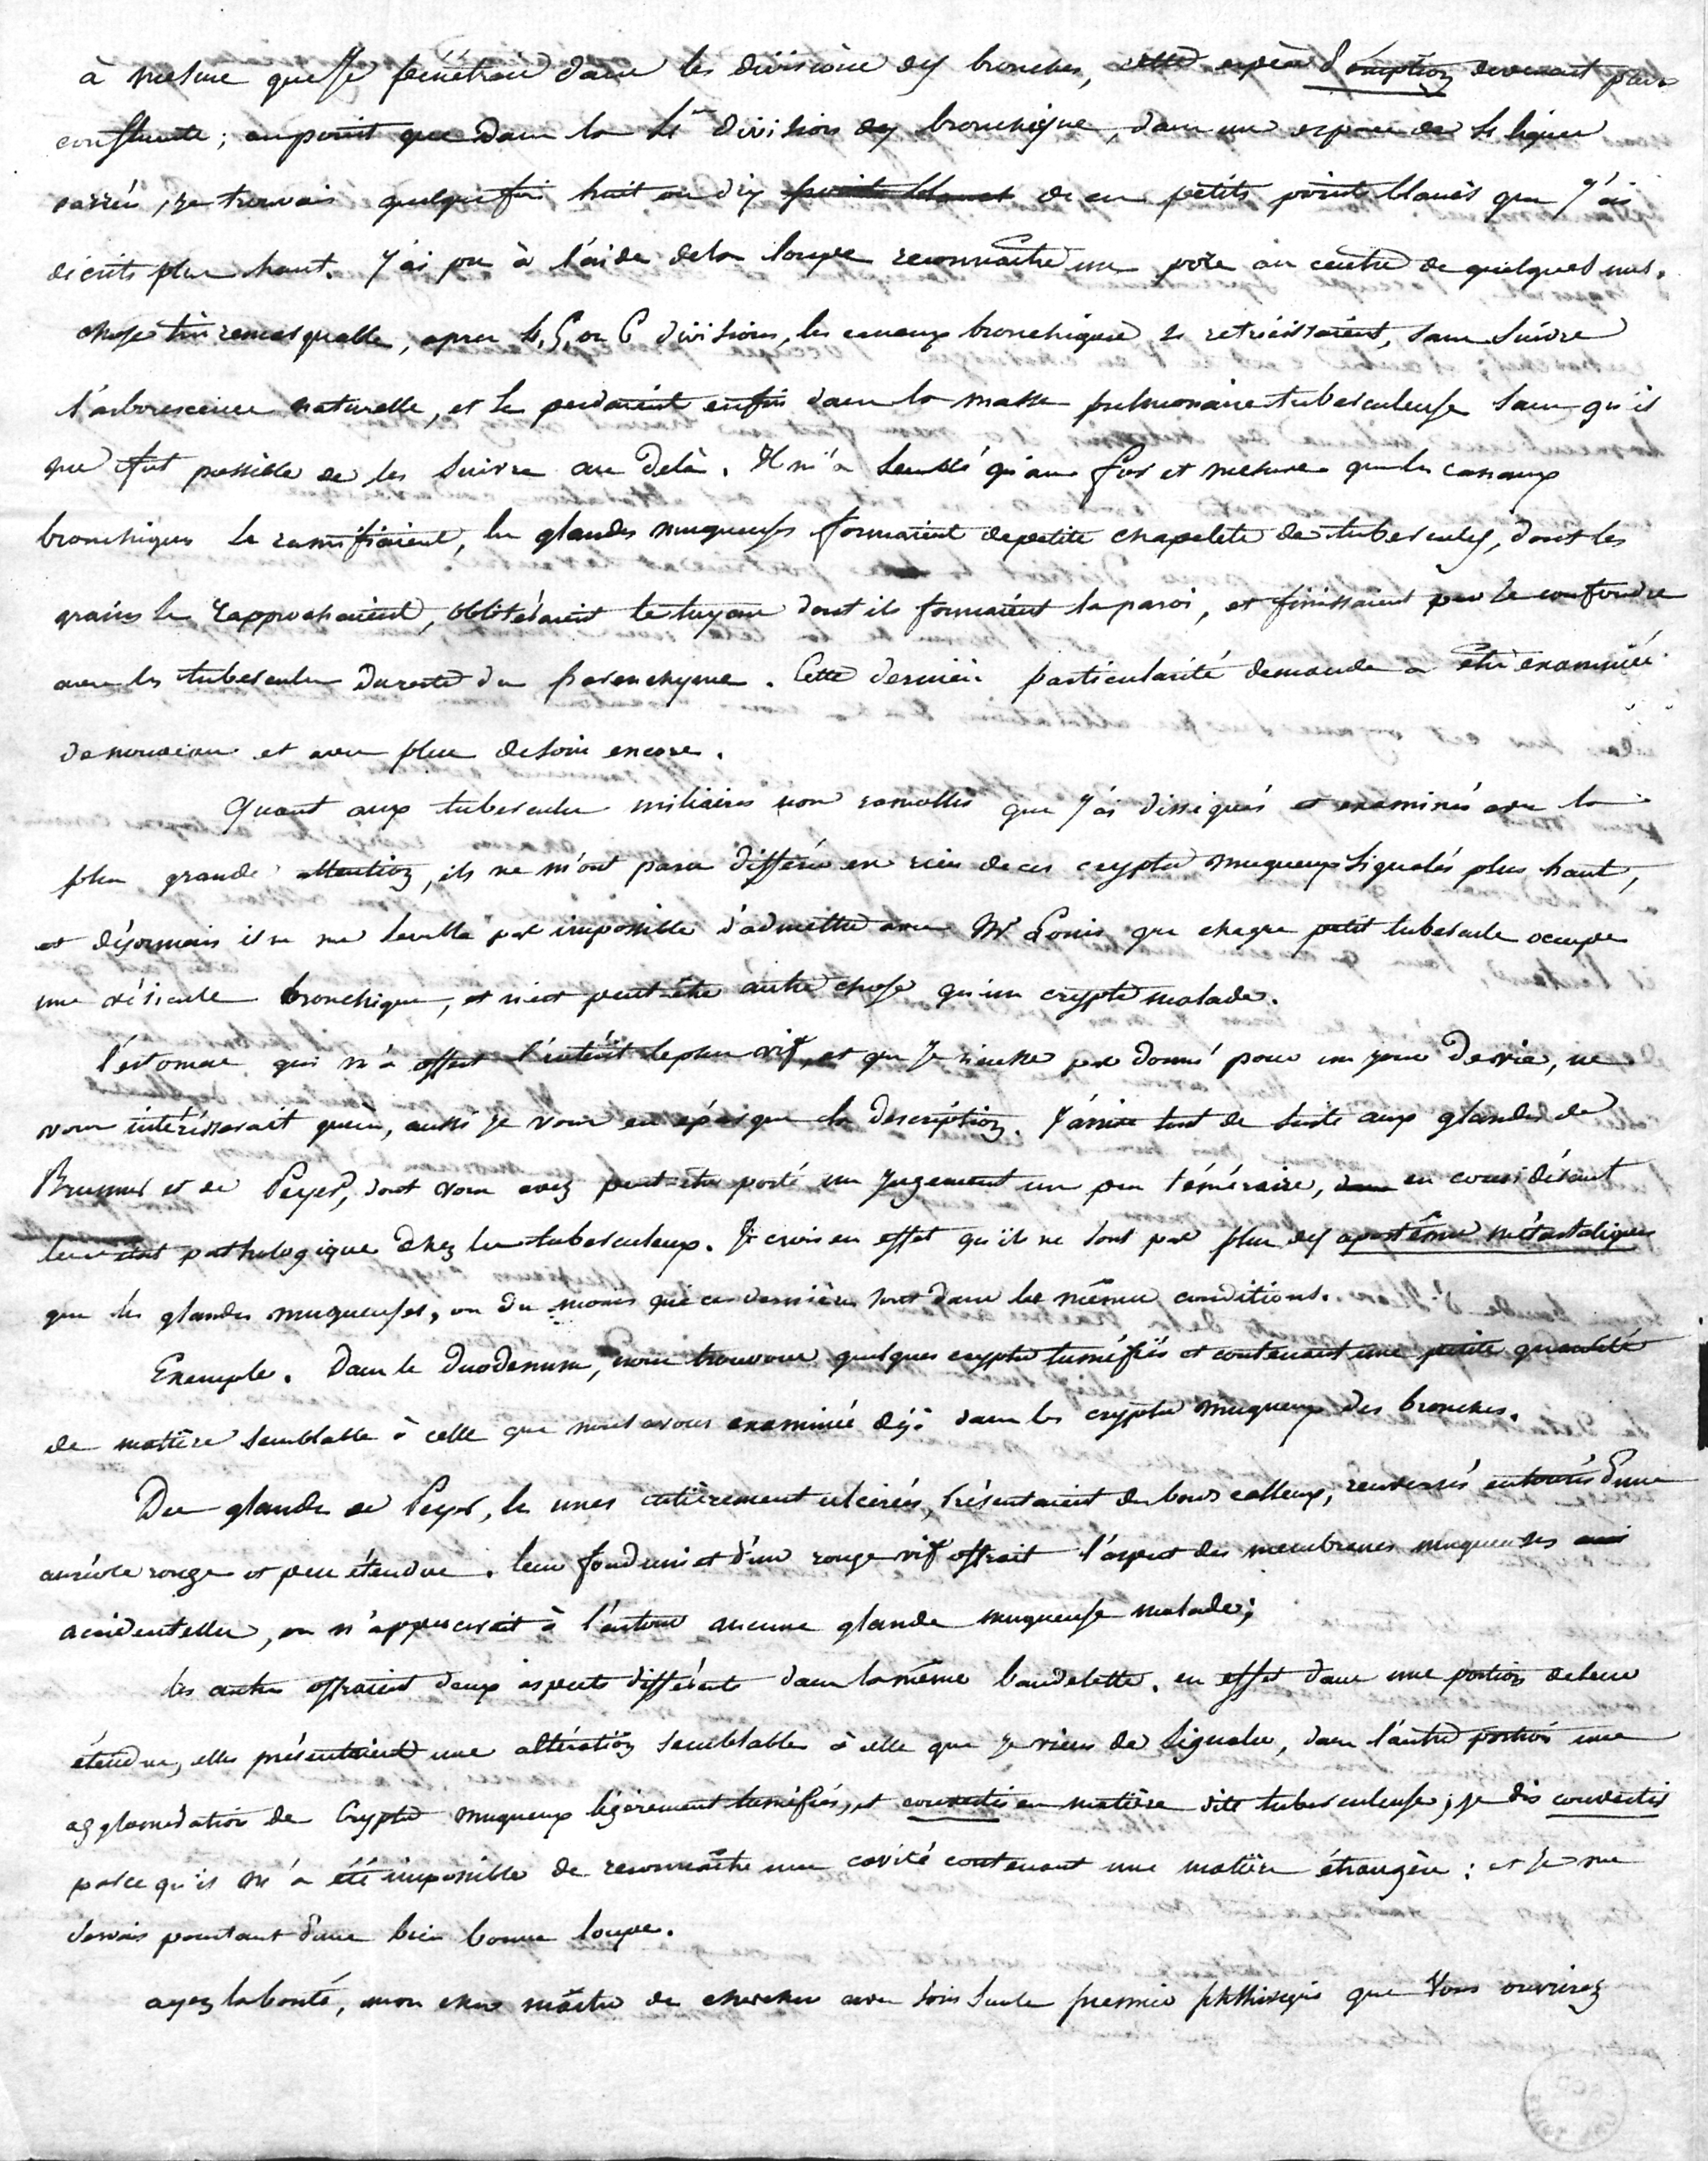 à mesure que je pénétrais dans les divisions des bronches, cette espèce d'éruption devenait plus
confluente ; au point que dans la 4e division des bronchique, dans un espace de 4 lignes
carrées, je trouvais quelquefois huit ou dix points blancs de ces petits points blancs que j'ai
décrits plus haut. J'ai pu à l'aide de la loupe reconnaître un pore au centre de quelques uns.
chose très remarquable, après 4, 5, ou 6 divisions, les canaux bronchiques se retrécissaient, sans suivre
l'arborescence naturelle, et se perdaient enfin dans la masse pulmonaire tuberculeuse sans qu'il
me fut possible de les suivre au delà. Il m'a semblé qu'au fur et mesure que les canaux
bronchiques se ramifiaient, les glandes muqueuses formaient de petits chapelets de tubercules, dont les
grains se rapprochaient, oblitéraient le tuyau dont ils formaient la paroi, et finissaient par se confondre
avec les tubercules du reste du parenchyme. Cette dernière particularité demande a être examinée
de nouveau et avec plus de soin encore.
Quant aux tubercules miliaires non ramollis que j'ai disséqués et examinés avec la
plus grande attention, ils ne m'ont paru différer en rien de ces cryptes muqueux signalés plus haut,
et désormais il ne me semble pas impossible d'admettre avec Mr Louis que chaque petit tubercule occupe
une vésicule bronchique, et n'est peut-être autre chose qu'un crypte malade.
l'estomac qui m'a offert l'intérêt le plus vif, et que je n'eusse pas donné pour un jour de vie, ne
vous intéresserait guère, aussi je vous en épargne la description. J'arrive tout de suite aux glandes de
Brunner et de Peyer, dont vous avez peut-être porté un jugement un peu téméraire, dans en considérant
leur état pathologique chez les tuberculeux. Je crois en effet qu'ils ne sont pas plus des apostèmes métastatiques
que les glandes muqueuses, ou du moins que ces dernières sont dans les mêmes conditions.
Exemple. Dans le duodenum, nous trouvons quelques cryptes tuméfiés et contenant une petite quantité
de matière semblable à celle que nous avons examinée déjà dans les cryptes muqueux des bronches.
Des glandes de Peyer, les unes entièrement ulcérées, présentaient des bords calleux, renversés entourés d'une
auréole rouge et peu étendue. leur fond uni et d'un rouge vif offrait l'aspect des membranes muqueuses
accidentelles, on n'appercevait à l'entour aucune glande muqueuse malade ;
les autres offraient deux aspects différents dans la même bandelette. en effet dans une portion de leur
étendue, elles présentaient une altération semblable à celle que je viens de signaler, dans l'autre portion une
agglomération de cryptes muqueux légèrement tuméfiés, et convertis en matière dite tuberculeuse ; je dis convertis
parce qu'il m'a été impossible de reconnaître une cavité contenant une matière étrangère : et je me
servais pourtant d'une bien bonne loupe.
ayez la bonté, mon cher maître de chercher avec soin sur le premier phthisique que vous ouvrirez